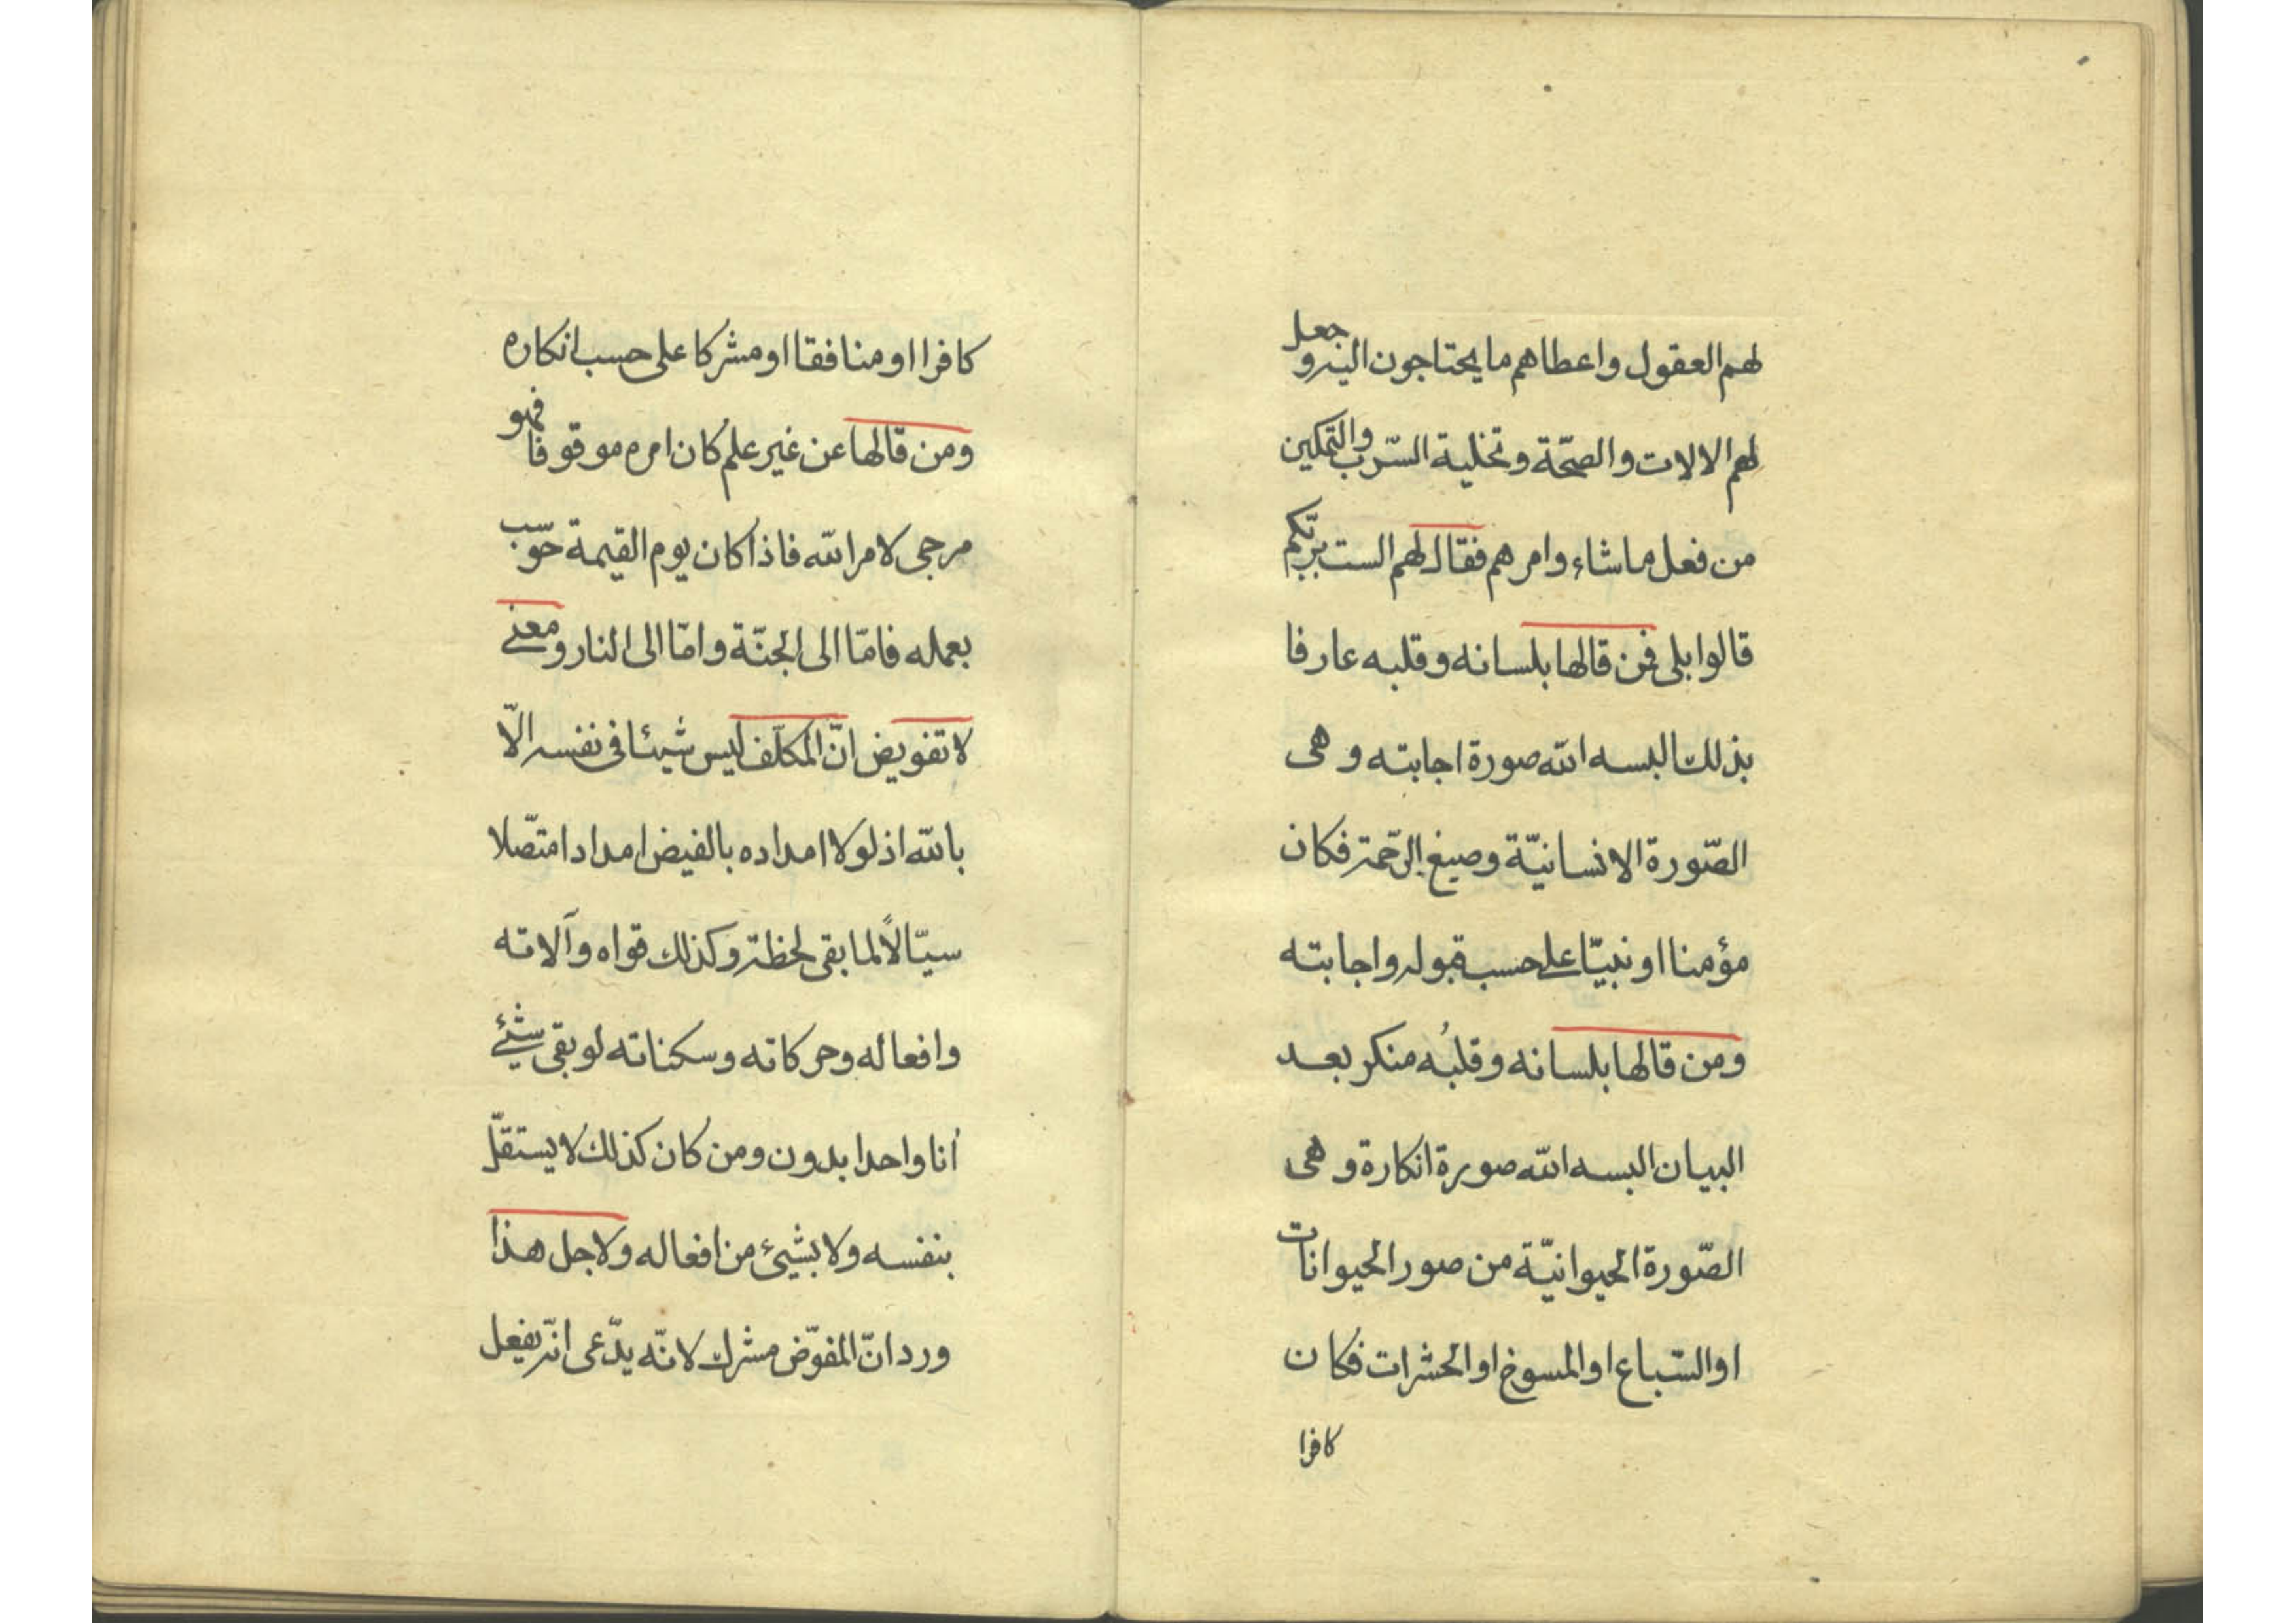 لهم العقول واعطاهم ما يحتاجون اليه وجعل
لهم الالات والصحّة وتخلية السّرب والتمكين
من فعل ما شاء وامرهم فقال لهم الست بربّكم
قالوا بلى فمن قالها بلسانه وقلبه عارفا
بذلك البسه الله صورة اجابته وهى
الصّورة الانسانيّة وصبغ الرّحمة فكان
مؤمنا او نبيّا على حسب قبوله واجابته
ومن قالها بلسانه وقلبُه منكر بعد
البيان البسه الله صورة انكارة وهى
الصّورة الحيوانيّة من صور الحيوانات
او السّباع او المسوخ او الحشرات فكان
كافرا
كافرا او منافقا او مشركا على حسب انكاره
ومن قالها عن غير علم كان امره موقوفا فهو
مرجى لامر الله فاذا كان يوم القيمة حوسب
بعمله فامّا الى الجنّة وامّا الى النار ومعنى
لا تفويض انّ المكلّف ليس شيئا فى نفسه الّا
بالله اذ لولا امداده بالفيض امدادا متّصلا
سيّالاً لما بقى لحظة وكذلك قواه وآلاته
وافعاله وحركاته وسكناته لو بقى شيئ
انا واحدا بدون ومن كان كذلك لا يستقلّ
بنفسه ولا بشيئ من افعاله ولاجل هذا
ورد انّ المفوّض مشرك لانّه يدّعى انّه يفعل